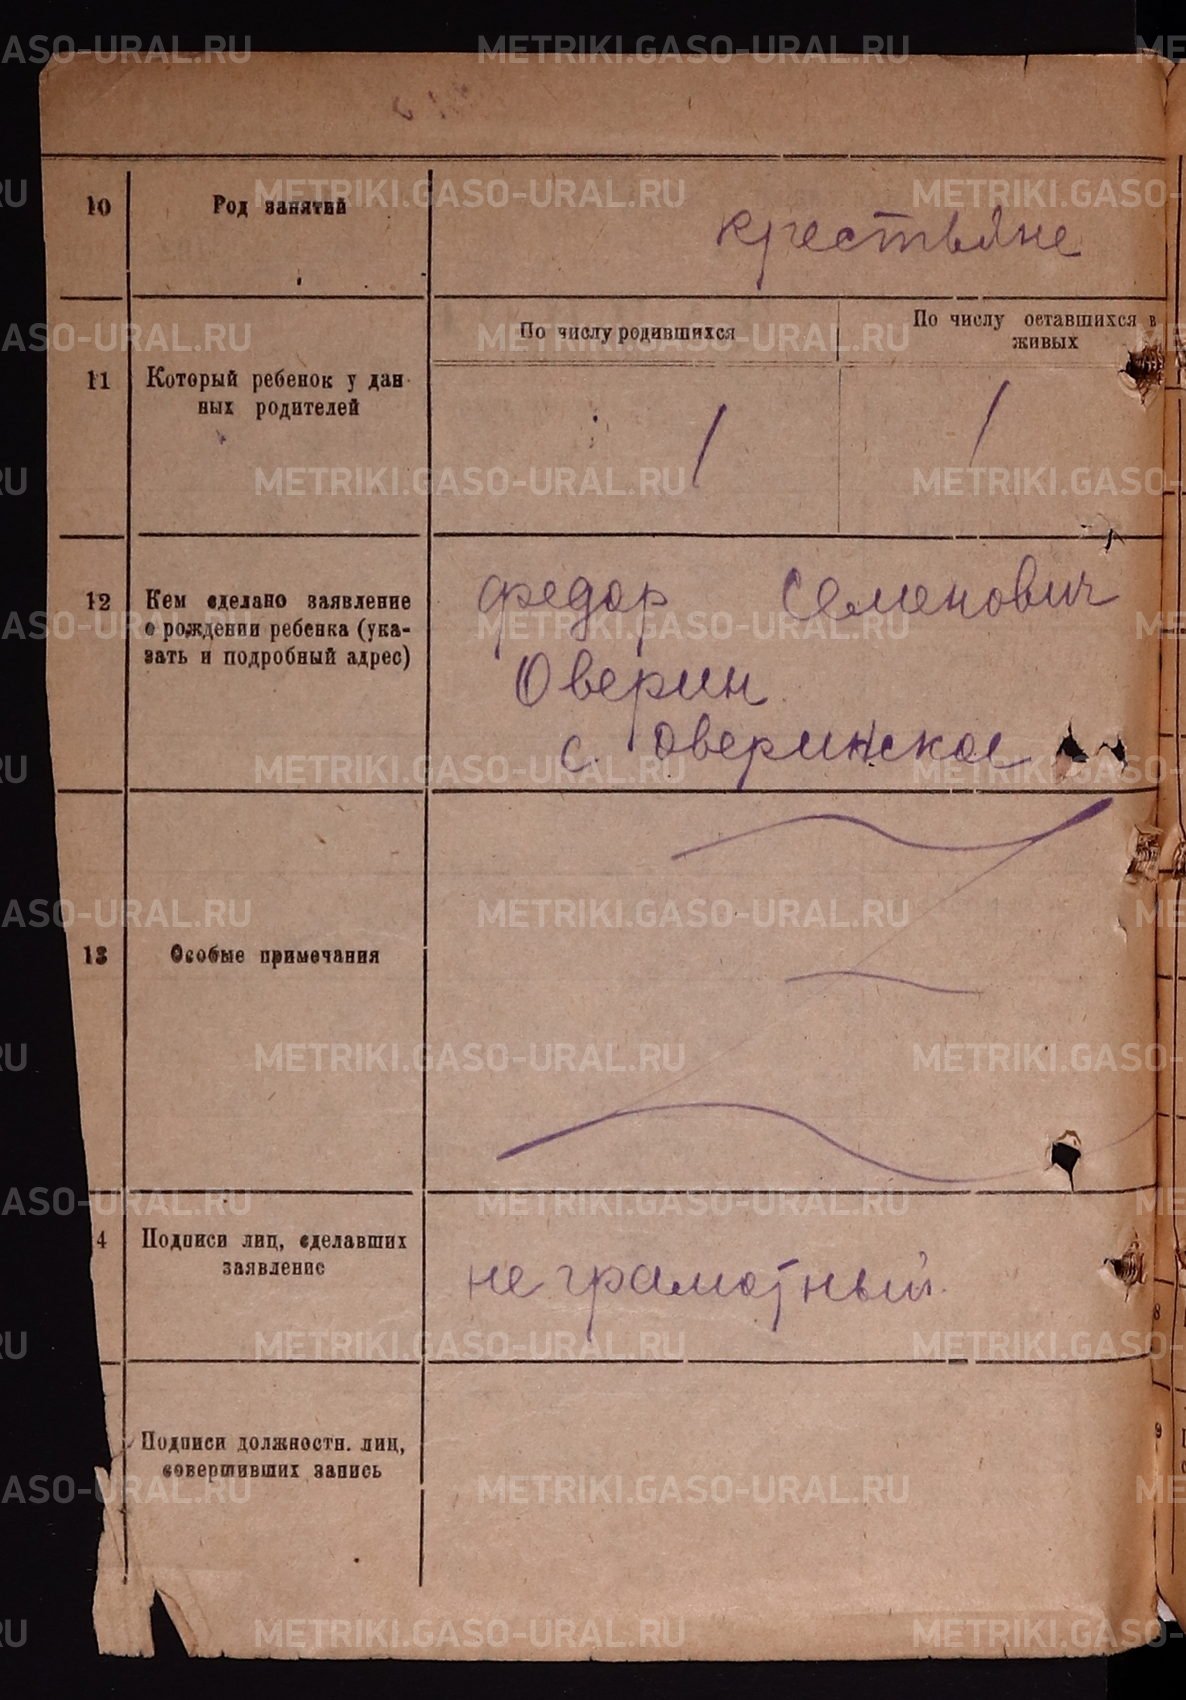 10 Род занятий крестьяне
По числу родившихся
По числу оставшихся в
живых
11 Который ребенок у дан-
ных родителей
1 1
12 Кем сделано заявление
о рождении ребенка (ука-
зать и подробный адрес)
федор Семенович
Оверин
с. Оверинское
13 Особые примечания
4 Подписи лиц, сделавших
заявление
не грамотный.
Подписи должностн. лиц,
совершивших запись
8
9
METRIKI.GASO-URAL.RU